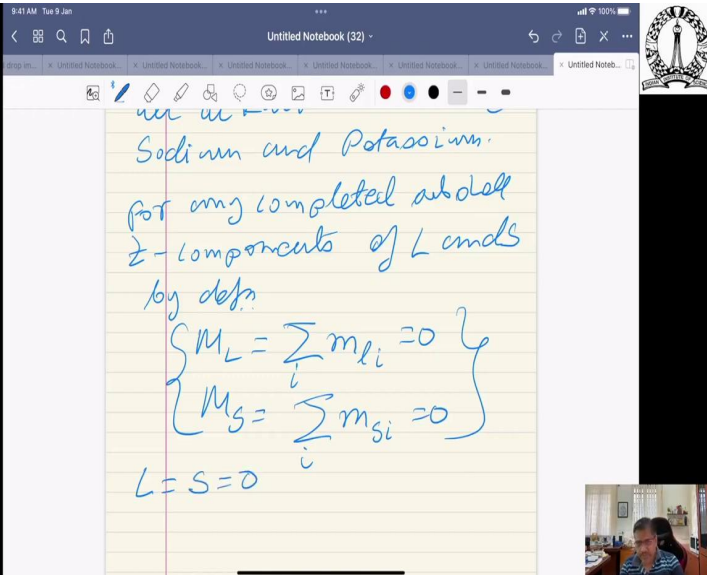 9:41 AM Tue 9 Jan
100%
Untitled Notebook (32)
drop im... × Untitled Notebook... × Untitled Notebook... × Untitled Notebook... × Untitled Notebook... × Untitled Notebook... × Untitled Notebook... × Untitled Noteb...
Sodium and Potassium.
For any completed subshell
Z-components of L and S
by defn
M_L = ∑_i m_{l_i} = 0
M_S = ∑_i m_{s_i} = 0
L = S = 0